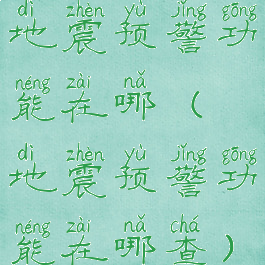 dì zhèn yù jǐng gōng
地震预警功
néng zài nǎ
能在哪（
dì zhèn yù jǐng gōng
地震预警功
néng zài nǎ chá
能在哪查）